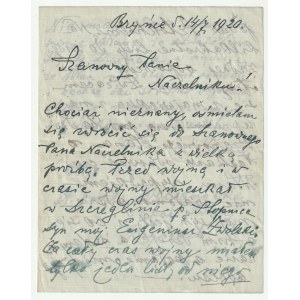 Bryńce d. 14/7 1920.
Szanowny Panie
Naczelniku!
Chociaż nieznany, ośmielam
się zwrócić się do Szanownego
Pana Naczelnika z wielką
prośbą. Przed wojną i w
czasie wojny mieszkał
w Szczeglinie p. Stopnica
syn mój Eugeniusz
Za cały czas wojny miałem
tylko jeden list od niego